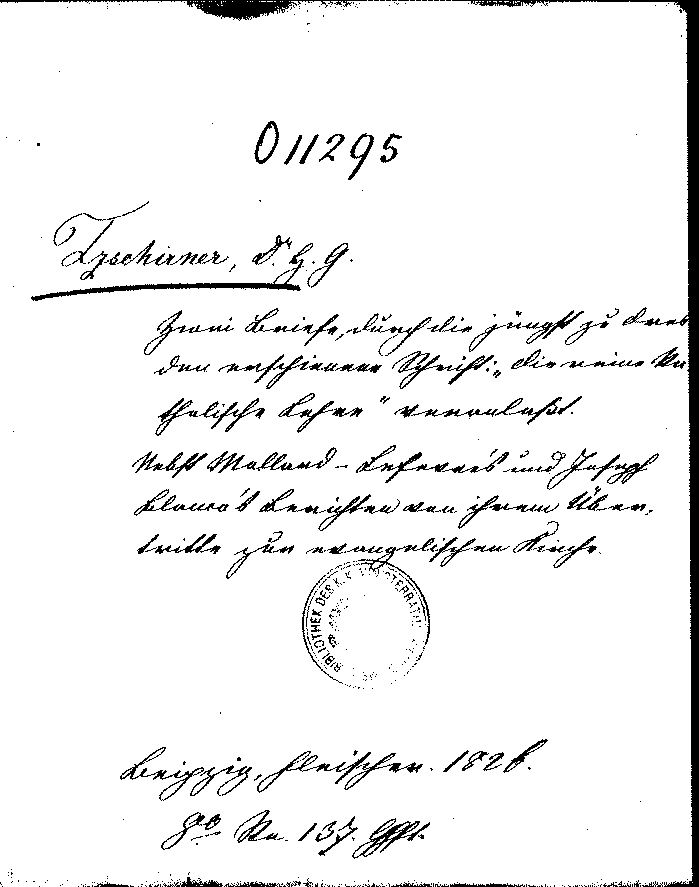 011295
Tzschirner, Dr H. G.
Zwei Briefe, durch die jüngst zu Dres
den erschienene Schrift: „die reine ka
tholische Lehre" veranlaßt.
Nebst Mollard-Lefevre's und Joseph
Blanco's Berichten von ihrem Über-
tritte zur evangelischen Kirche.
BIBLIOTHEK DES K.K. MINISTERRATHS
Leipzig, Fleischer. 1826.
8vo 137.